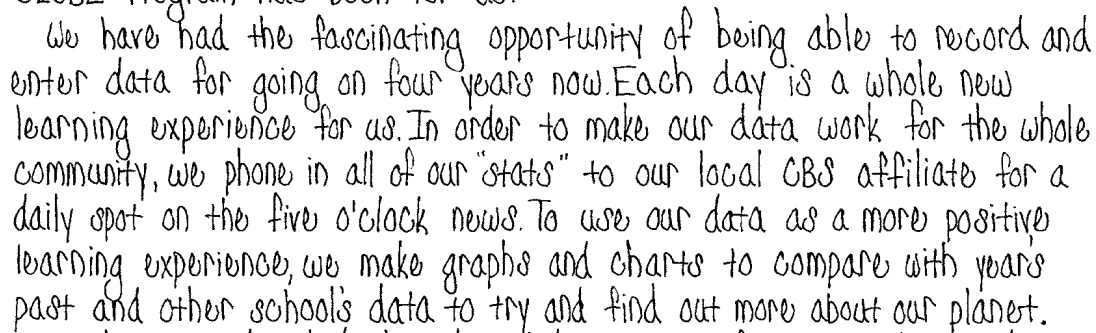 We have had the fascinating opportunity of being able to record and
enter data for going on four years now. Each day is a whole new
learning experience for us. In order to make our data work for the whole
community, we phone in all of our "stats" to our local CBS affiliate for a
daily spot on the five o'clock news. To use our data as a more positive
learning experience, we make graphs and charts to compare with years
past and other school's data to try and find out more about our planet.